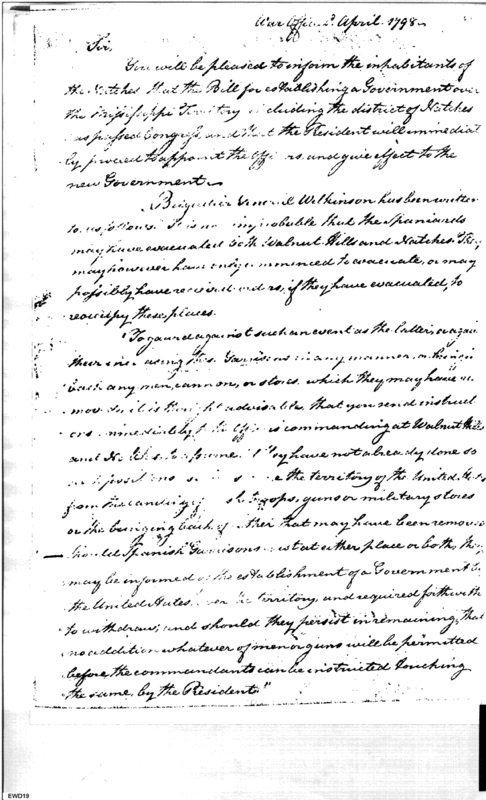 War Office 2d April 1798
Sir,
You will be pleased to inform the inhabitants of
the Natches that the Bill for establishing a Government over
the Missisippi Territory including the district of Natches
has passed Congress, and that the President will immediat
ly proceed to appoint the Officers, and give effect to the
new Government.
Brigadier General Wilkinson has been written
to as follows. It is not improbable that the Spaniards
may have evacuated both Walnut Hills and Natches. They
may however have only commenced to evacuate, or may
possibly have received orders, if they have evacuated, to
reoccupy these places.
"To guard against such an event as the latter, or again
their increasing their Garrisons in any manner, or bringing
back any men, cannon, or stores, which they may have re
moved, it is thought advisable, that you send instruct
ions immediately to the Officers commanding at Walnut Hills
and Natches, to prevent if they have not already done so
the territory of the United States
from the landing of troops, guns or military stores
or the bringing back of either that may have been removed
Should Spanish Garrisons exist at either place or both, they
may be informed of the establishment of a Government by
the United States over the territory, and required forthwith
to withdraw; and should they persist in remaining, that
no addition whatever of men or guns will be permitted
before the commandants can be instructed touching
the same, by the President."
EWD19